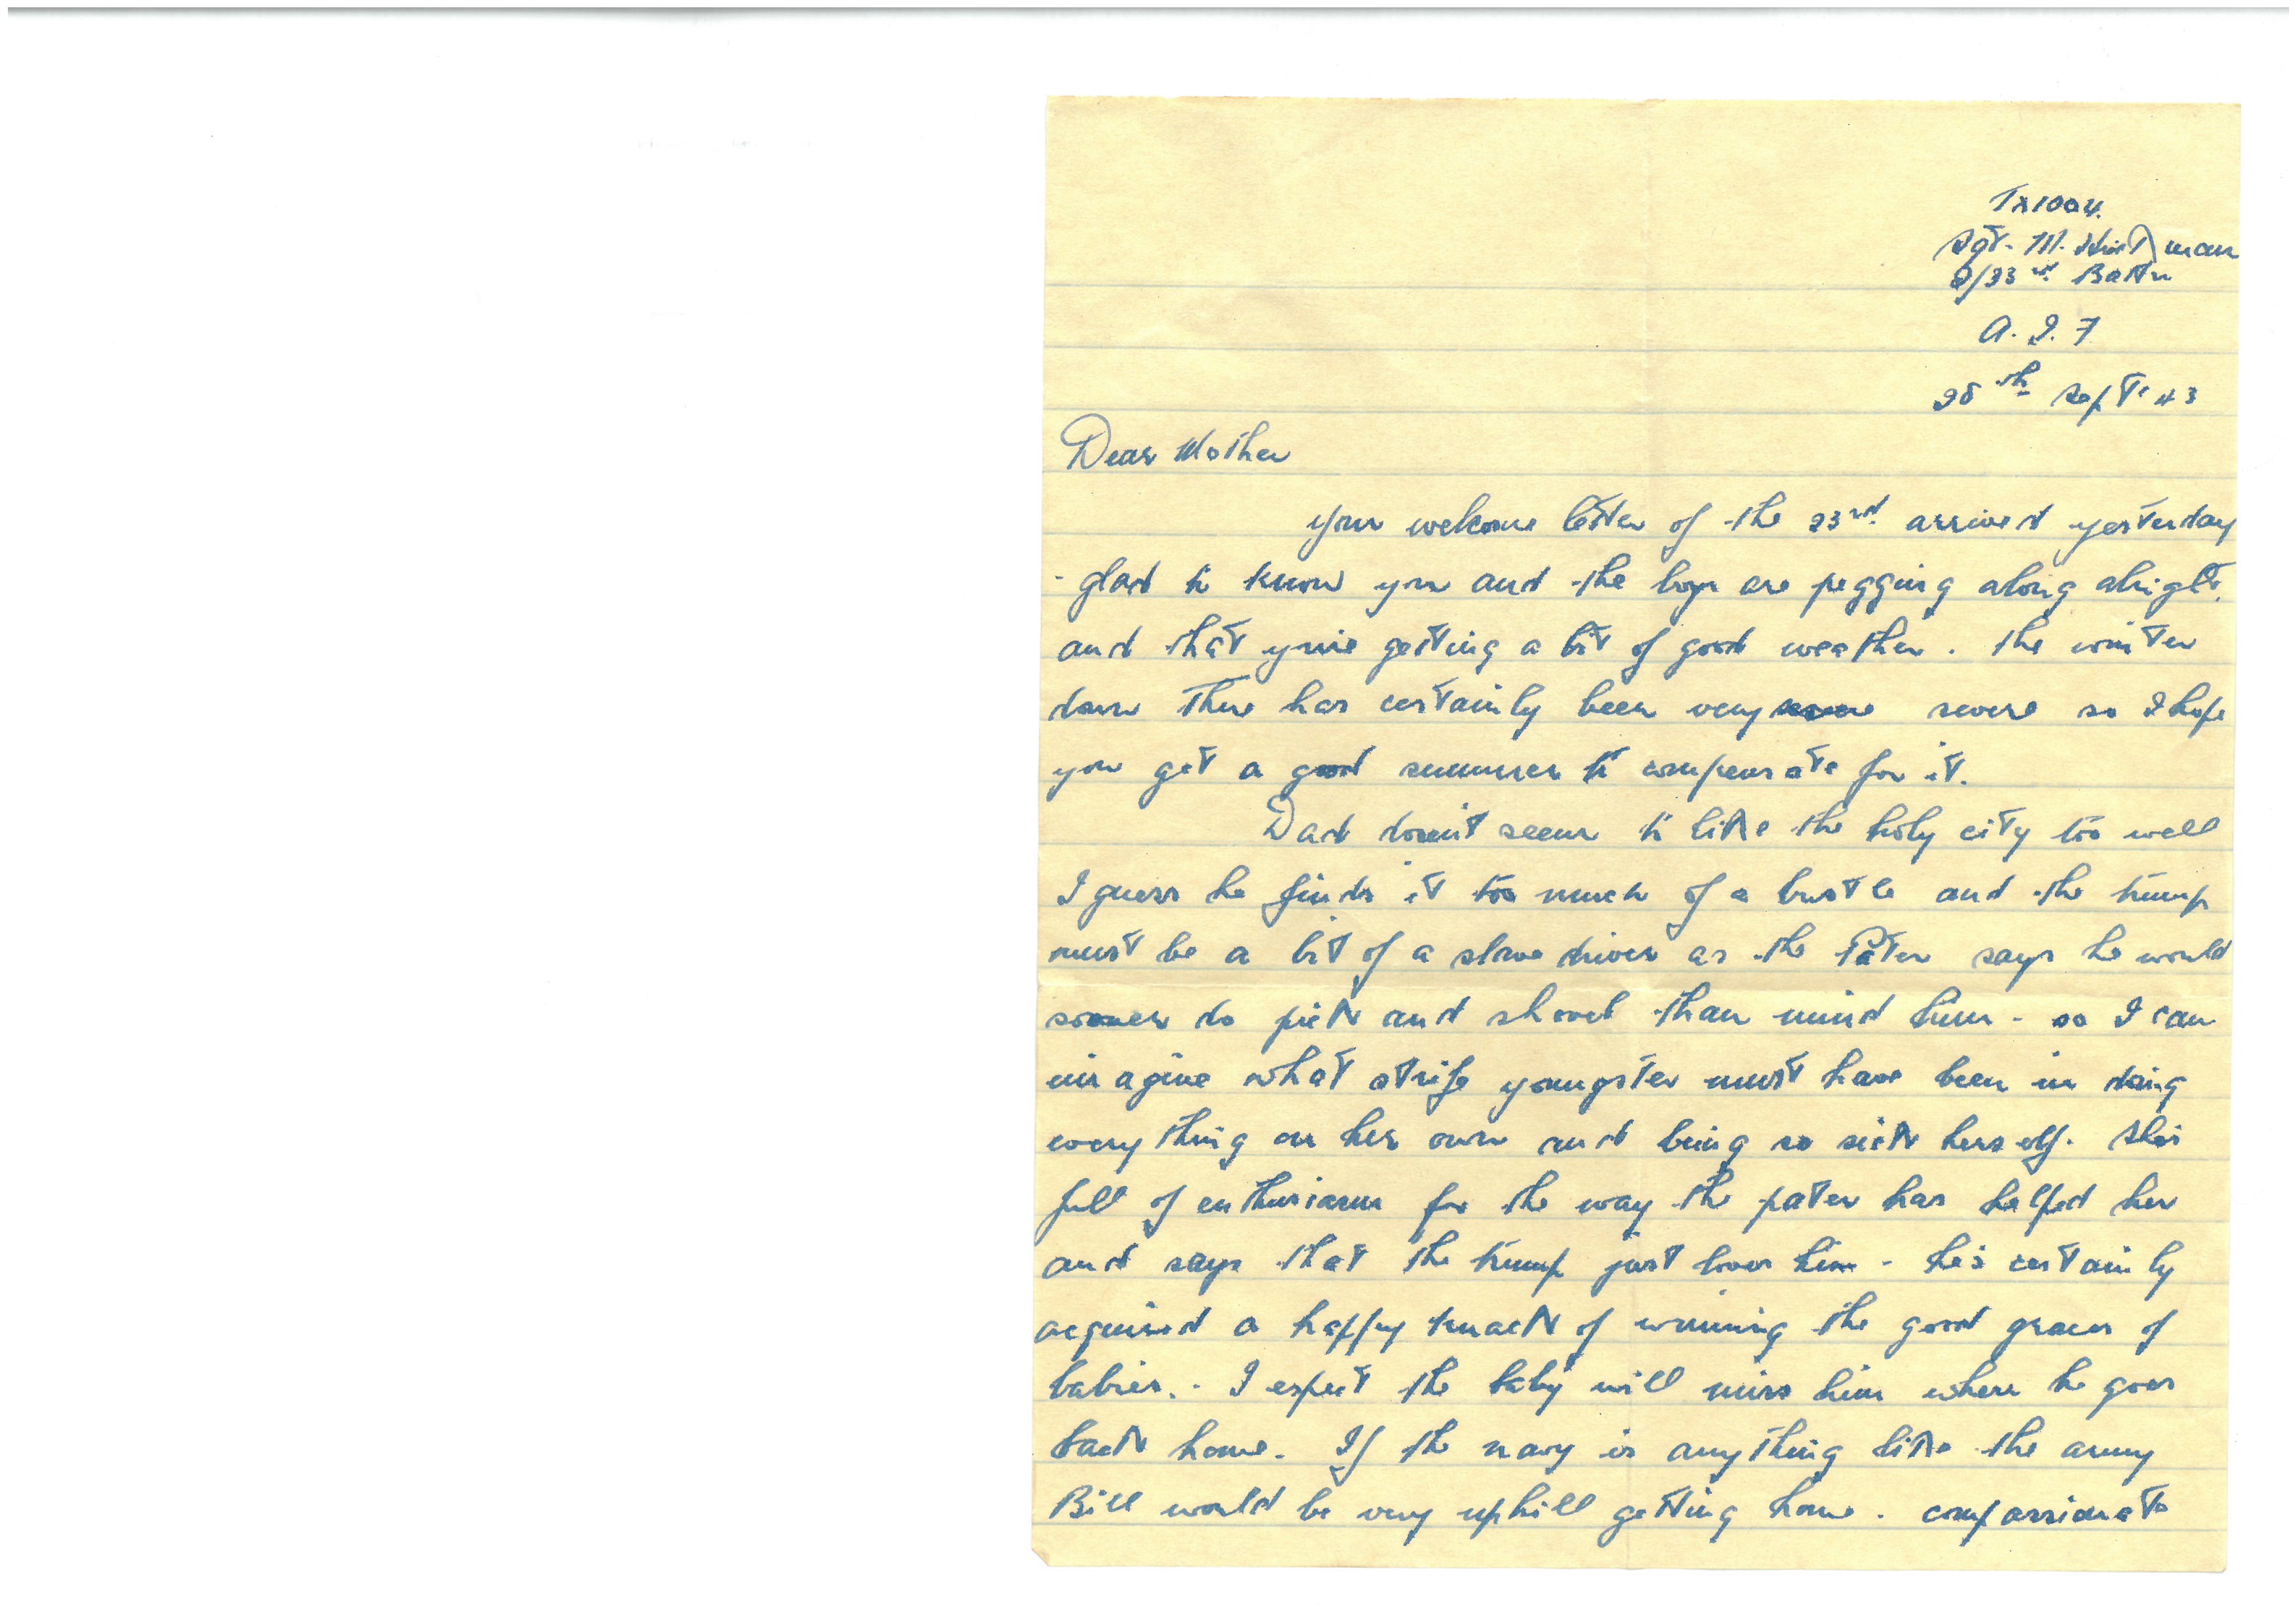 Tx1004.
Sgt. M.
2/33rd Battn
A.I.F
28th Sept. 43
Dear Mother
your welcome letter of the 23rd. arrived yesterday
- glad to know you and the boys are pegging along alright.
and that you're getting a bit of good weather. the winter
down there has certainly been very severe so I hope
you get a good summer to compensate for it.
Dad doesn't seem to like the holy city too well
I guess he finds it too much of a bustle and the trump
must be a bit of a slave driver as the Pater says he would
sooner do pick and shovel than mind him - so I can
imagine what strife youngster must have been in doing
everything on her own and being so sick herself. She's
full of enthusiasm for the way the pater has helped her
and says that the trump just loves him - he's certainly
acquired a happy knack of winning the good graces of
babies. - I expect the baby will miss him when he goes
back home. If the navy is anything like the army
Bill would be very uphill getting home. compassionate